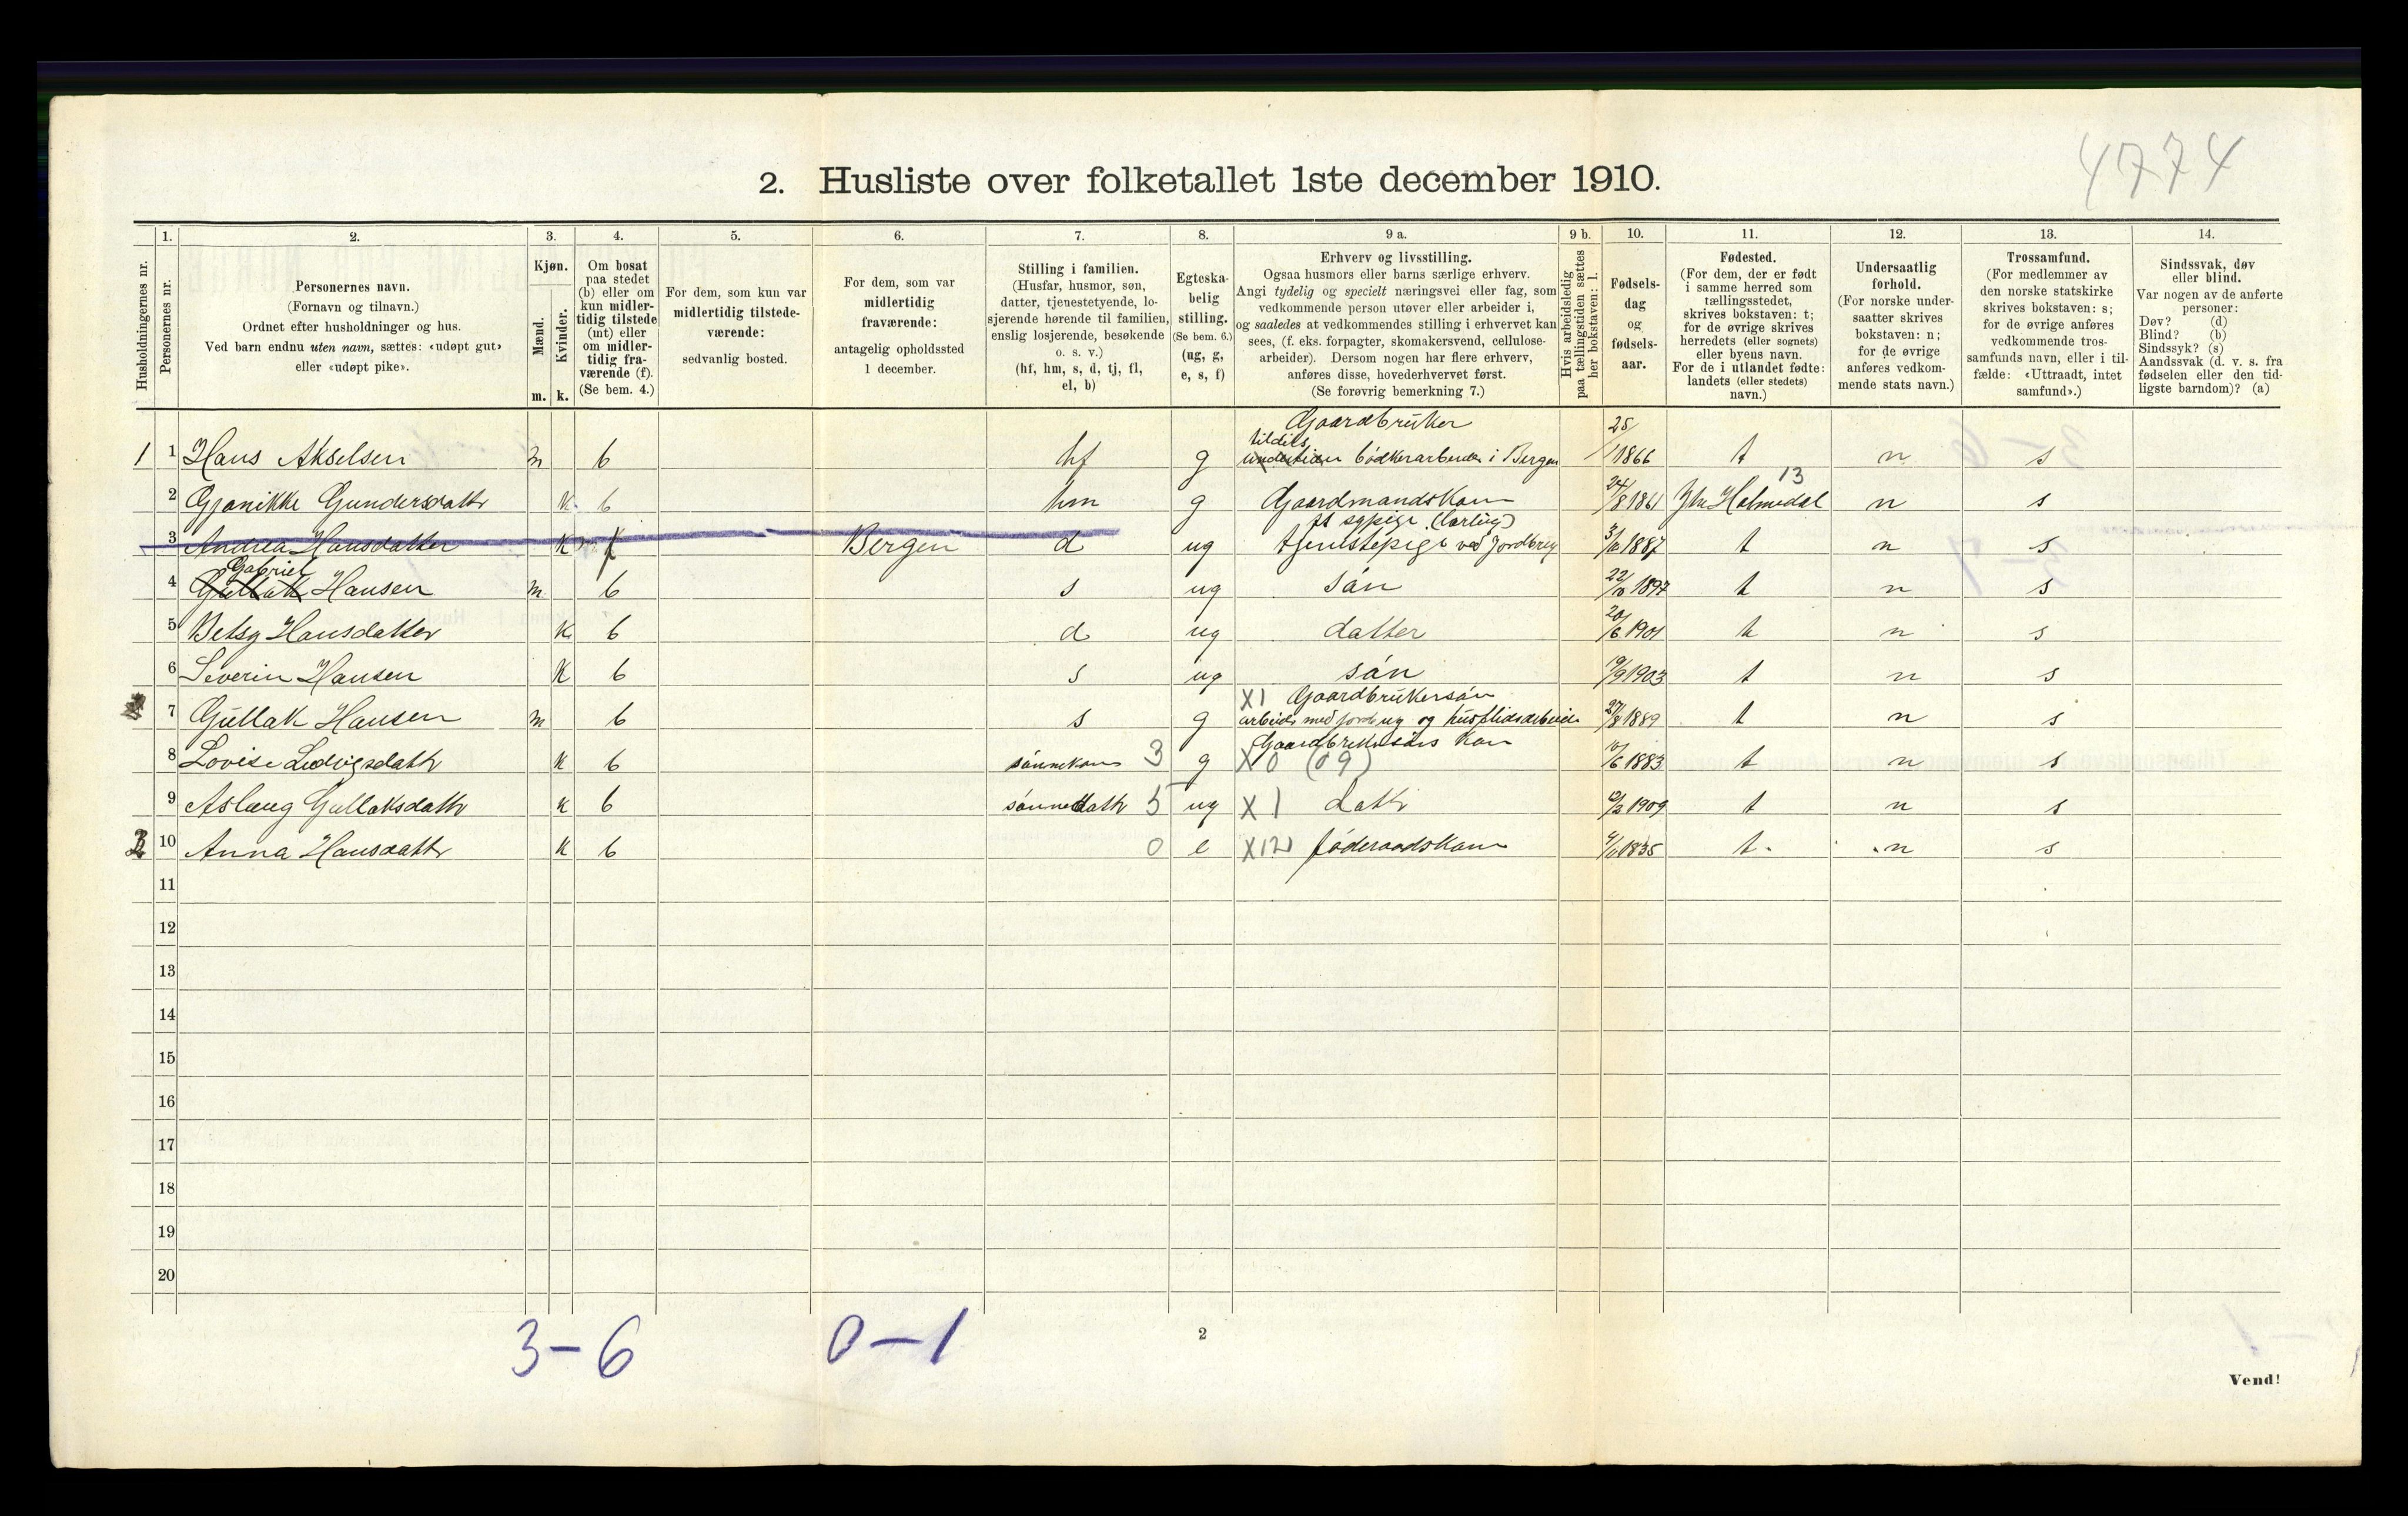 4774
2. Husliste over folketallet 1ste december 1910.
Husholdningernes nr.
1. Personernes nr.
2. Personernes navn. (Fornavn og tilnavn.) Ordnet efter husholdninger og hus. Ved barn endnu uten navn, sættes: «udøpt gut» eller «udøpt pike».
3. Kjøn. Mænd. m. Kvinder. k.
4. Om bosat paa stedet (b) eller om kun midlertidig tilstede (mt) eller om midlertidig fraværende (f). (Se bem. 4.)
5. For dem, som kun var midlertidig tilstedeværende: sedvanlig bosted.
6. For dem, som var midlertidig fraværende: antagelig opholdssted 1 december.
7. Stilling i familien. (Husfar, husmor, søn, datter, tjenestetyende, losjerende hørende til familien, enslig losjerende, besøkende o. s. v.) (hf, hm, s, d, tj, fl, el, b)
8. Egteskabelig stilling. (Se bem. 6.) (ug, g, e, s, f)
9 a. Erhverv og livsstilling. Ogsaa husmors eller barns særlige erhverv. Angi tydelig og specielt næringsvei eller fag, som vedkommende person utøver eller arbeider i, og saaledes at vedkommendes stilling i erhvervet kan sees, (f. eks. forpagter, skomakersvend, cellulosearbeider). Dersom nogen har flere erhverv, anføres disse, hovederhvervet først. (Se forøvrig bemerkning 7.)
9 b. Hvis arbeidsledig paa tællingstiden sættes her bokstaven: l.
10. Fødselsdag og fødselsaar.
11. Fødested. (For dem, der er født i samme herred som tællingsstedet, skrives bokstaven: t; for de øvrige skrives herredets (eller sognets) eller byens navn. For de i utlandet fødte: landets (eller stedets) navn.)
12. Undersaatlig forhold. (For norske undersaatter skrives bokstaven: n; for de øvrige anføres vedkommende stats navn.)
13. Trossamfund. (For medlemmer av den norske statskirke skrives bokstaven: s; for de øvrige anføres vedkommende trossamfunds navn, eller i tilfælde: «Uttraadt, intet samfund».)
14. Sindssvak, døv eller blind. Var nogen av de anførte personer: Døv? (d) Blind? (b) Sindssyk? (s) Aandssvak (d. v. s. fra fødselen eller den tidligste barndom)? (a)
Gaardbruker
1 1 Hans Akselsen m b hf g tildels bødkerarbeider i Bergen 25/1 1866 t n s
13
2 Gjanikke Gundersdattr k b hm g Gaardmandskone 24/8 1861 Ytre Holmedal n s
3 Andrea Hansdatter k f Bergen d ug tjenestepige ved Jordbrug 1887 t n s
Gabriel
4 Gullak Hansen m b s ug søn 22/10 1897 t n s
5 Betsy Hansdatter k b d ug datter 20/6 1901 t n s
6 Severin Hansen k b s ug søn 19/9 1903 t n s
X1 Gaardbrukersøn
7 Gullak Hansen m b s g arbeider med jordbrug og husflidsarbeide 27/8 1889 t n s
Gaardbrukersøns kone
8 Lovise Ludvigsdattr k b sønnekone 3 g X0 (09) 10/6 1883 t n s
9 Aslaug Gullaksdattr k b sønnedattr 5 ug X1 dattr 1909 t n s
2 10 Anna Hansdattr k b 0 e X12 føderaadskone 1835 t n s
11
12
13
14
15
16
17
18
19
20
3-6 0-1
2
Vend!